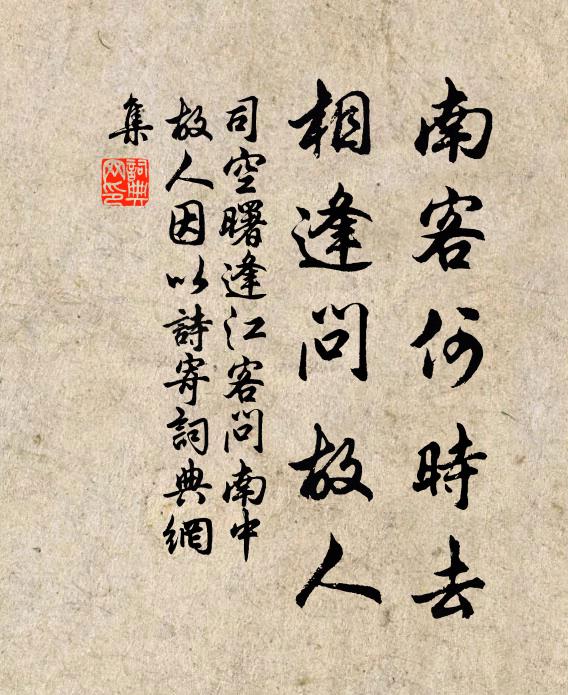 南客何時去
相逢問故人
司空曙逢江客問南中
故人因以詩寄詞典網
集
詞典網印